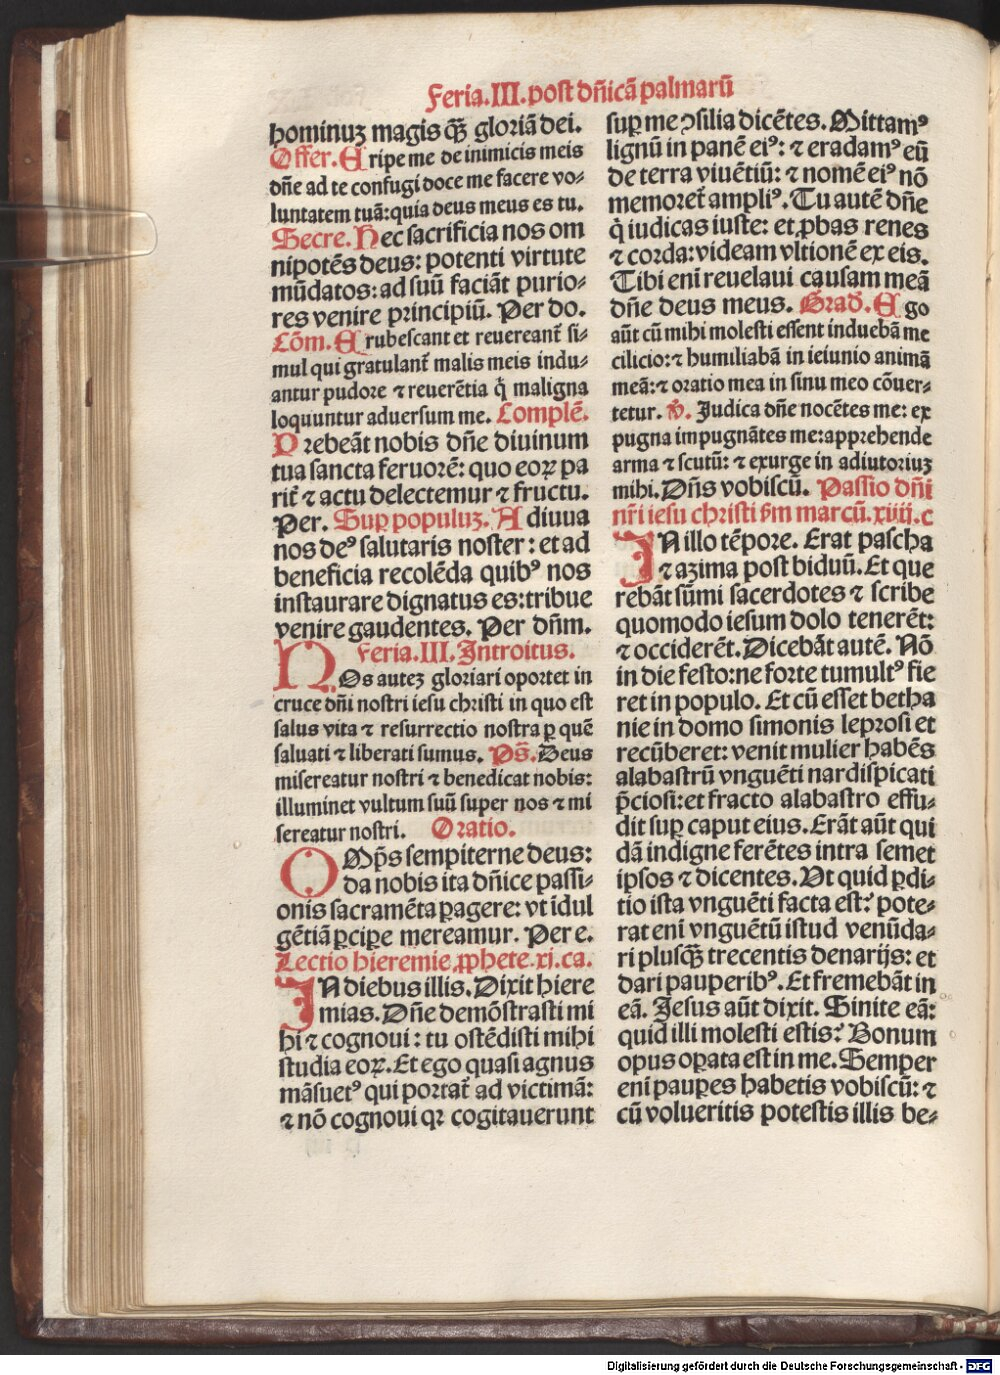 Feria.III.post dñicã palmarũ
hominuꝫ magis q̃ꝫ gloriã dei.
Offer. Eripe me de inimicis meis
dñe ad te confugi doce me facere vo⸗
luntatem tuã:quia deus meus es tu.
Secre. Hec sacrificia nos om
nipotẽs deus: potenti virtute
mũdatos:ad suũ faciãt purio⸗
res venire principiũ. Per do.
Cõm. Erubescant et reuereant̃ si⸗
mul qui gratulant̃ malis meis indu⸗
antur pudore ⁊ reuerẽtia q̃ maligna
loquuntur aduersum me. Complẽ.
Prebeãt nobis dñe diuinum
tua sancta feruorẽ: quo eoꝝ pa
rit̃ ⁊ actu delectemur ⁊ fructu.
Per. Suꝑ populuꝫ. Adiuua
nos deꝰ salutaris noster: et ad
beneficia recolẽda quibꝰ nos
instaurare dignatus es:tribue
venire gaudentes. Per dñm.
Feria.III.Introitus.
NOs auteꝫ gloriari oportet in
cruce dñi nostri iesu christi in quo est
salus vita ⁊ resurrectio nostra ꝑ quẽ
saluati ⁊ liberati sumus. Ps̃. Deus
misereatur nostri ⁊ benedicat nobis:
illuminet vultum suũ super nos ⁊ mi
sereatur nostri. Oratio.
OMp̃s sempiterne deus:
da nobis ita dñice passi⸗
onis sacramẽta ꝑagere: vt ĩdul
gẽtiã ꝑciꝑe mereamur. Per e.
Lectio hieremie ꝓphete.xi.ca.
IN diebus illis. Dixit hiere
mias. Dñe demõstrasti mi
hi ⁊ cognoui: tu ostẽdisti mihi
studia eoꝝ. Et ego quasi agnus
mãsuetꝰ qui portat̃ ad victimã:
⁊ nõ cognoui qꝛ cogitauerunt
suꝑ me ꝯsilia dicẽtes. Mittamꝰ
lignũ in panẽ eiꝰ: ⁊ eradamꝰ eũ
de terra viuẽtiũ: ⁊ nomẽ eiꝰ nõ
memoret̃ ampliꝰ. Tu autẽ dñe
q̃ iudicas iuste: et ꝓbas renes
⁊ corda: videam vltionẽ ex eis.
Tibi enĩ reuelaui causam meã
dñe deus meus. Grad̃. Ego
aũt cũ mihi molesti essent induebã me
cilicio:⁊ humiliabã in ieiunio animã
meã:⁊ oratio mea in sinu meo cõuer⸗
tetur. ℣. Judica dñe nocẽtes me: ex
pugna impugnãtes me:apprehende
arma ⁊ scutũ: ⁊ exurge in adiutoriuꝫ
mihi. Dñs vobiscũ. Passio dñi
nr̃i iesu christi s̃m marcũ.xiiij.c
IN illo tẽpore. Erat pascha
⁊ azima post biduũ. Et que
rebãt sũmi sacerdotes ⁊ scribe
quomodo iesum dolo tenerẽt:
⁊ occiderẽt. Dicebãt autẽ. Nõ
in die festo:ne forte tumultꝰ fie
ret in populo. Et cũ esset betha
nie in domo simonis leprosi et
recũberet: venit mulier habẽs
alabastrũ vnguẽti nardi spicati
p̃ciosi:et fracto alabastro effu⸗
dit suꝑ caput eius. Erãt aũt qui
dã indigne ferẽtes intra semet
ipsos ⁊ dicentes. Vt quid ꝑdi⸗
tio ista vnguẽti facta est? pote⸗
rat enĩ vnguẽtũ istud venũda⸗
ri plusq̃ꝫ trecentis denarijs: et
dari pauperibꝰ. Et fremebãt in
eã. Jesus aũt dixit. Sinite eã:
quid illi molesti estis? Bonum
opus oꝑata est in me. Semper
enĩ pauꝑes habetis vobiscũ: ⁊
cũ volueritis potestis illis be⸗
Digitalisierung gefördert durch die Deutsche Forschungsgemeinschaft - DFG